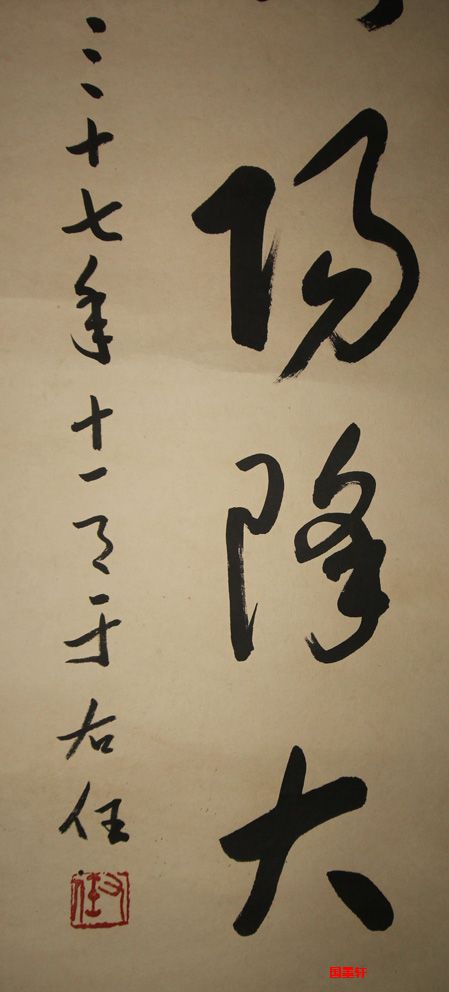 陽降大
三十七年十一月于右任
右任
国墨轩